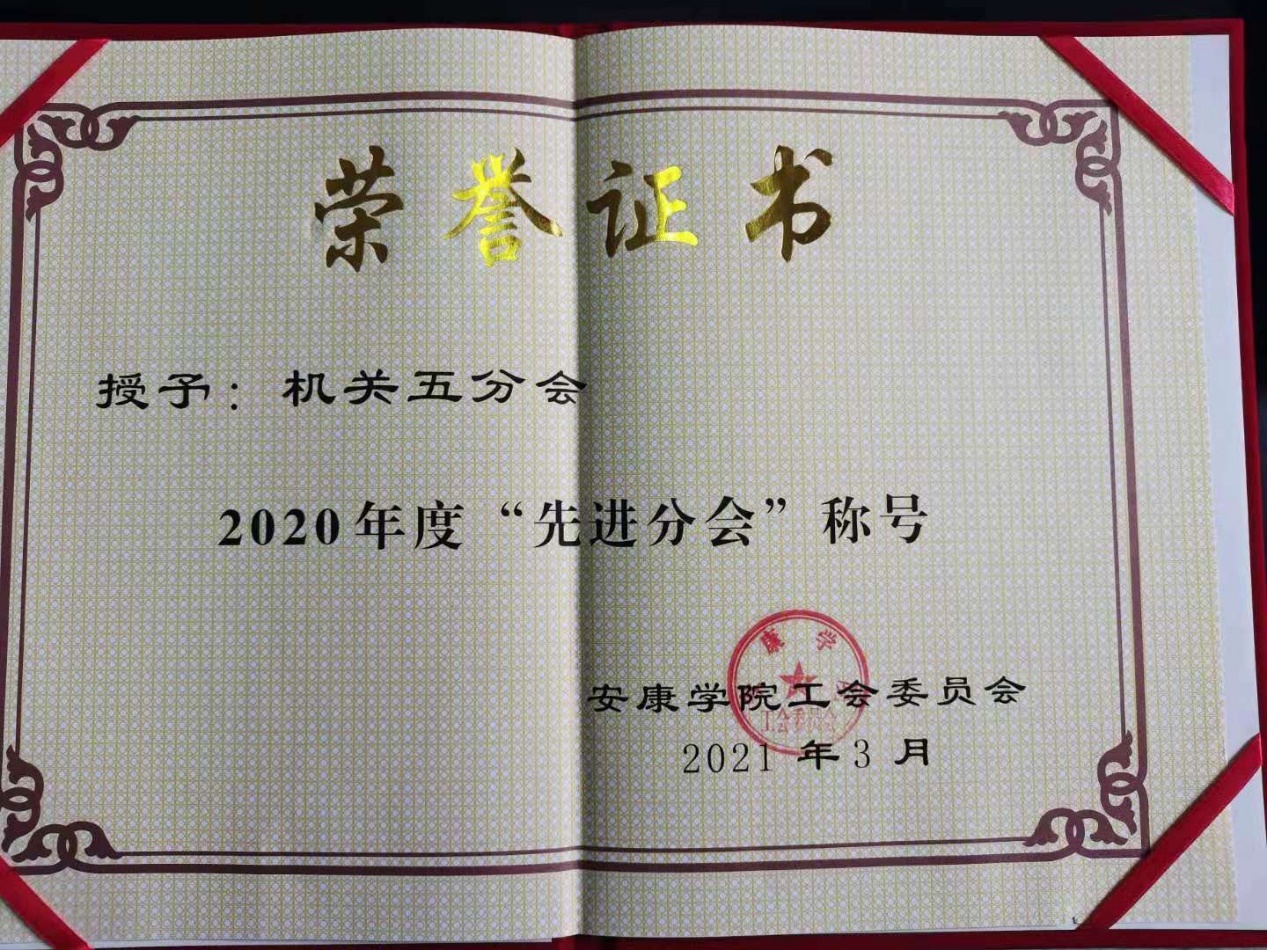 荣誉证书
授予：机关五分会
2020年度“先进分会”称号
康学
安康学院工会委员会
工会委员会
2021年3月